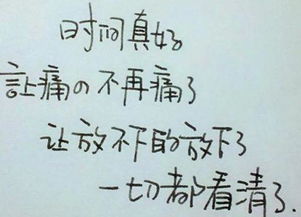 时间真好
让痛の不再痛了
让放不下的放下了
一切都看清了.